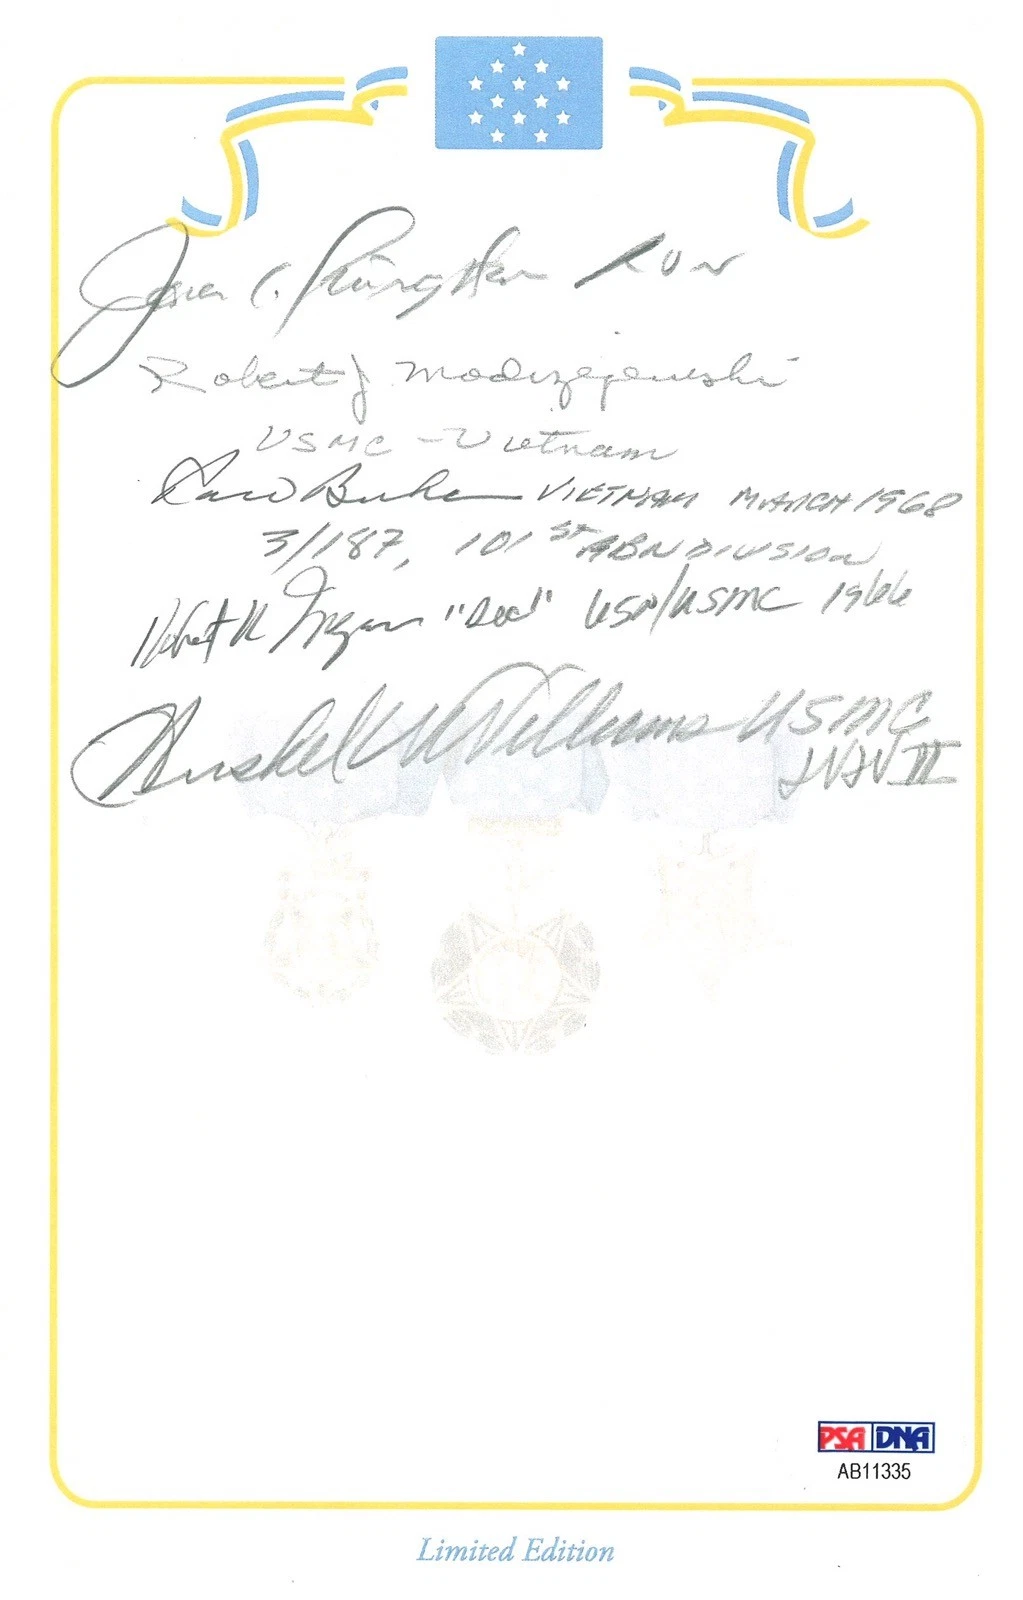 James C. Livingston RVN
Robert J Modrzejewski
USMC - Vietnam
Bucha VIETNAM MARCH 1968
3/187, 101st ABN DIVISION
Robert R Ingram "Doc" USN/USMC 1966
Hershel W Williams USMC
WW II
PSA DNA
AB11335
Limited Edition